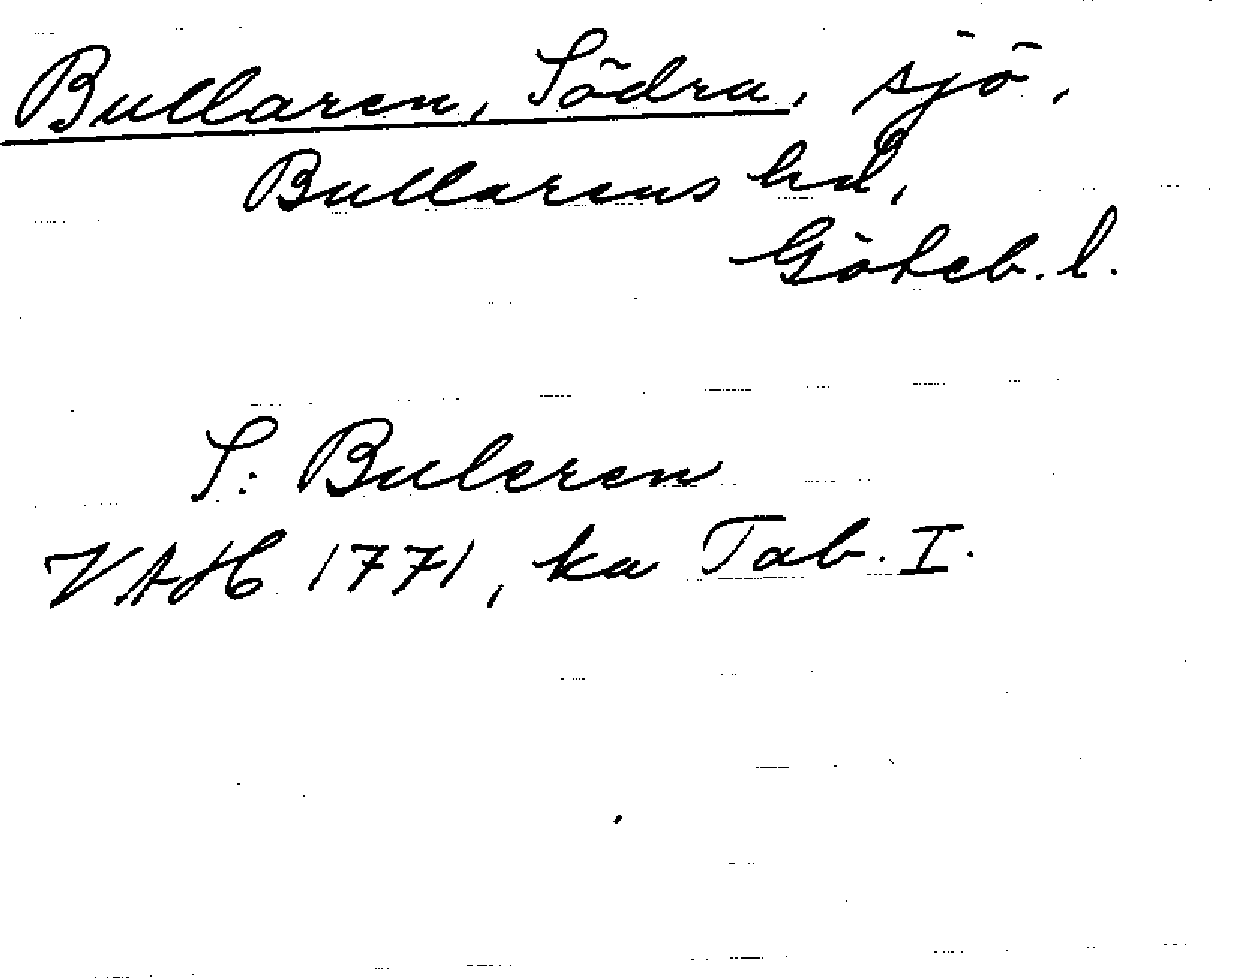 Bullaren, Södra, sjö,
Bullarens hd,
Göteb. l.
S: Buleren
VAH 1771, ka Tab. I.